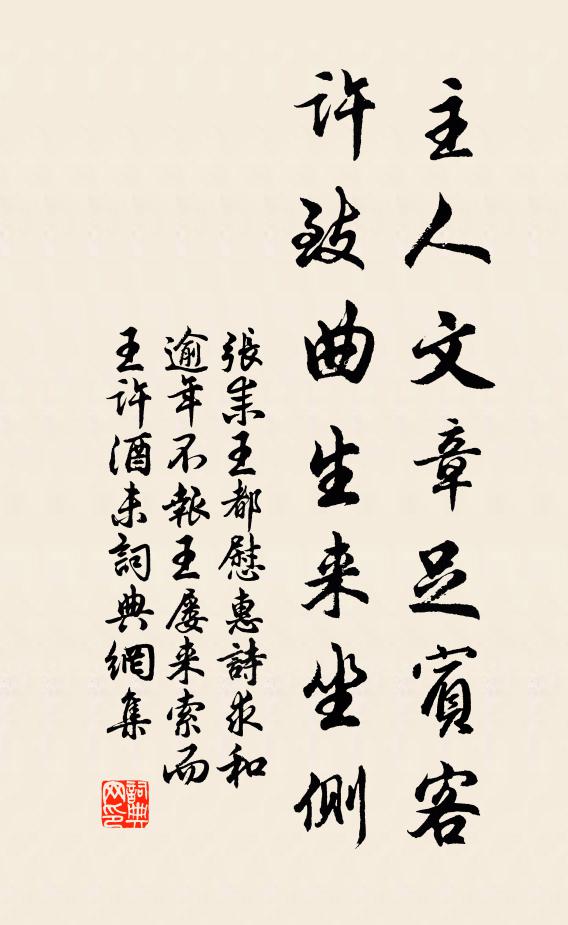 主人文章足賓客
許致曲生来坐側
張耒王都慰惠詩求和
逾年不報王屡来索而
王許酒未詞典網集
詞典网印